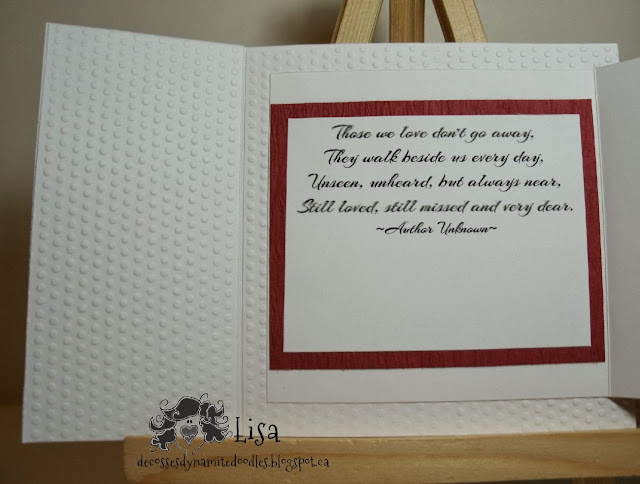 Those we love don't go away,
They walk beside us every day,
Unseen, unheard, but always near,
Still loved, still missed and very dear.
~Author Unknown~
Lisa
decossesdynamitedoodles.blogspot.ca